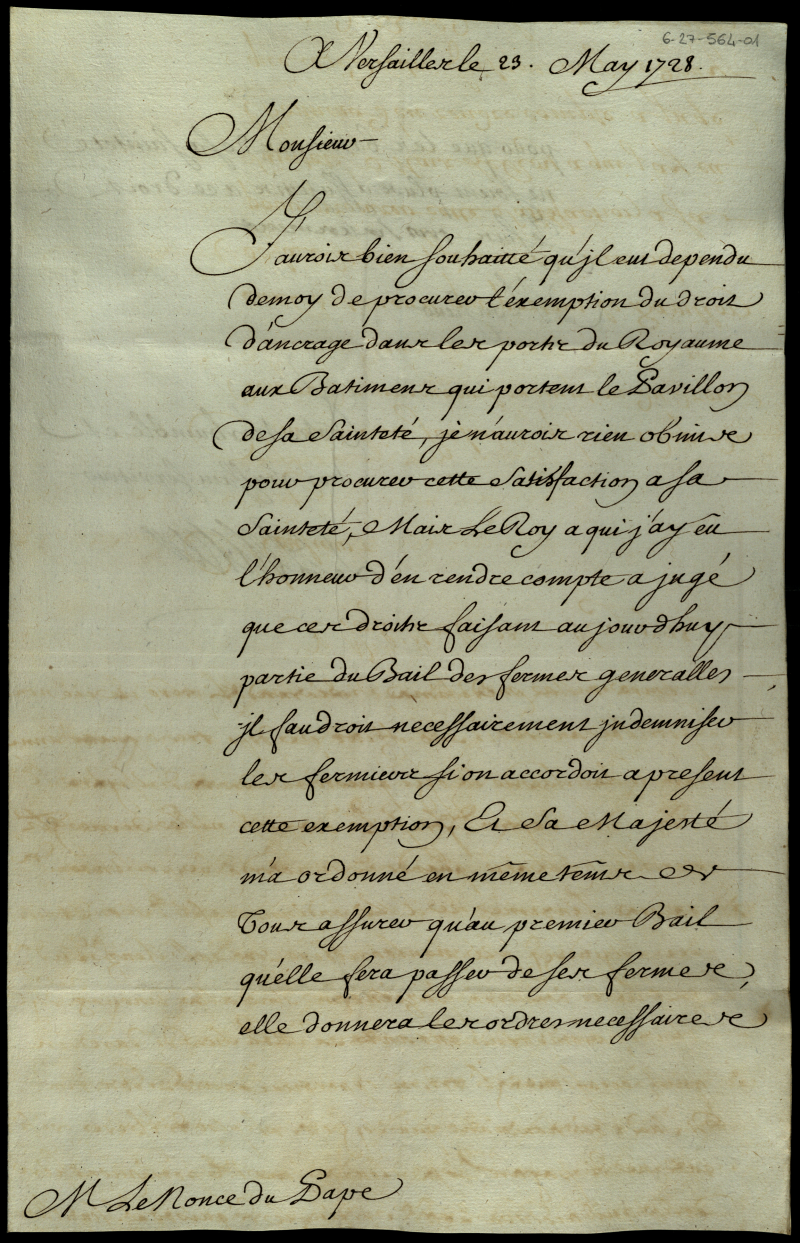 6-27-564-01
A Versailles le 23. May 1728.
Monsieur
J'aurois bien souhaitté qu'jl eut dependu
de moy de procurer l'éxemption du droit
d'áncrage dans les ports du Royaume
aux Batimens qui portent le Pavillon
de sa Sainteté, je n'aurois rien obmis
pour procurer cette Satisfaction a sa
Sainteté, Mais Le Roy a qui j'ay eû
l'honneur d'én rendre compte a jugé
que ces droits faisant aujourdhuy
partie du Bail des fermes generalles
jl faudroit necessairement jndemniser
les fermiers si on accordoit a present
cette exemption, Et Sa Majesté
m'a ordonné en même tems de
Vous assurer qu'au premier Bail
qu'elle fera passer de ses fermes,
elle donnera les ordres necessaires
M Le Nonce du Pape